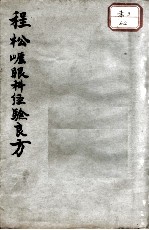 程松崖眼科经驗良方